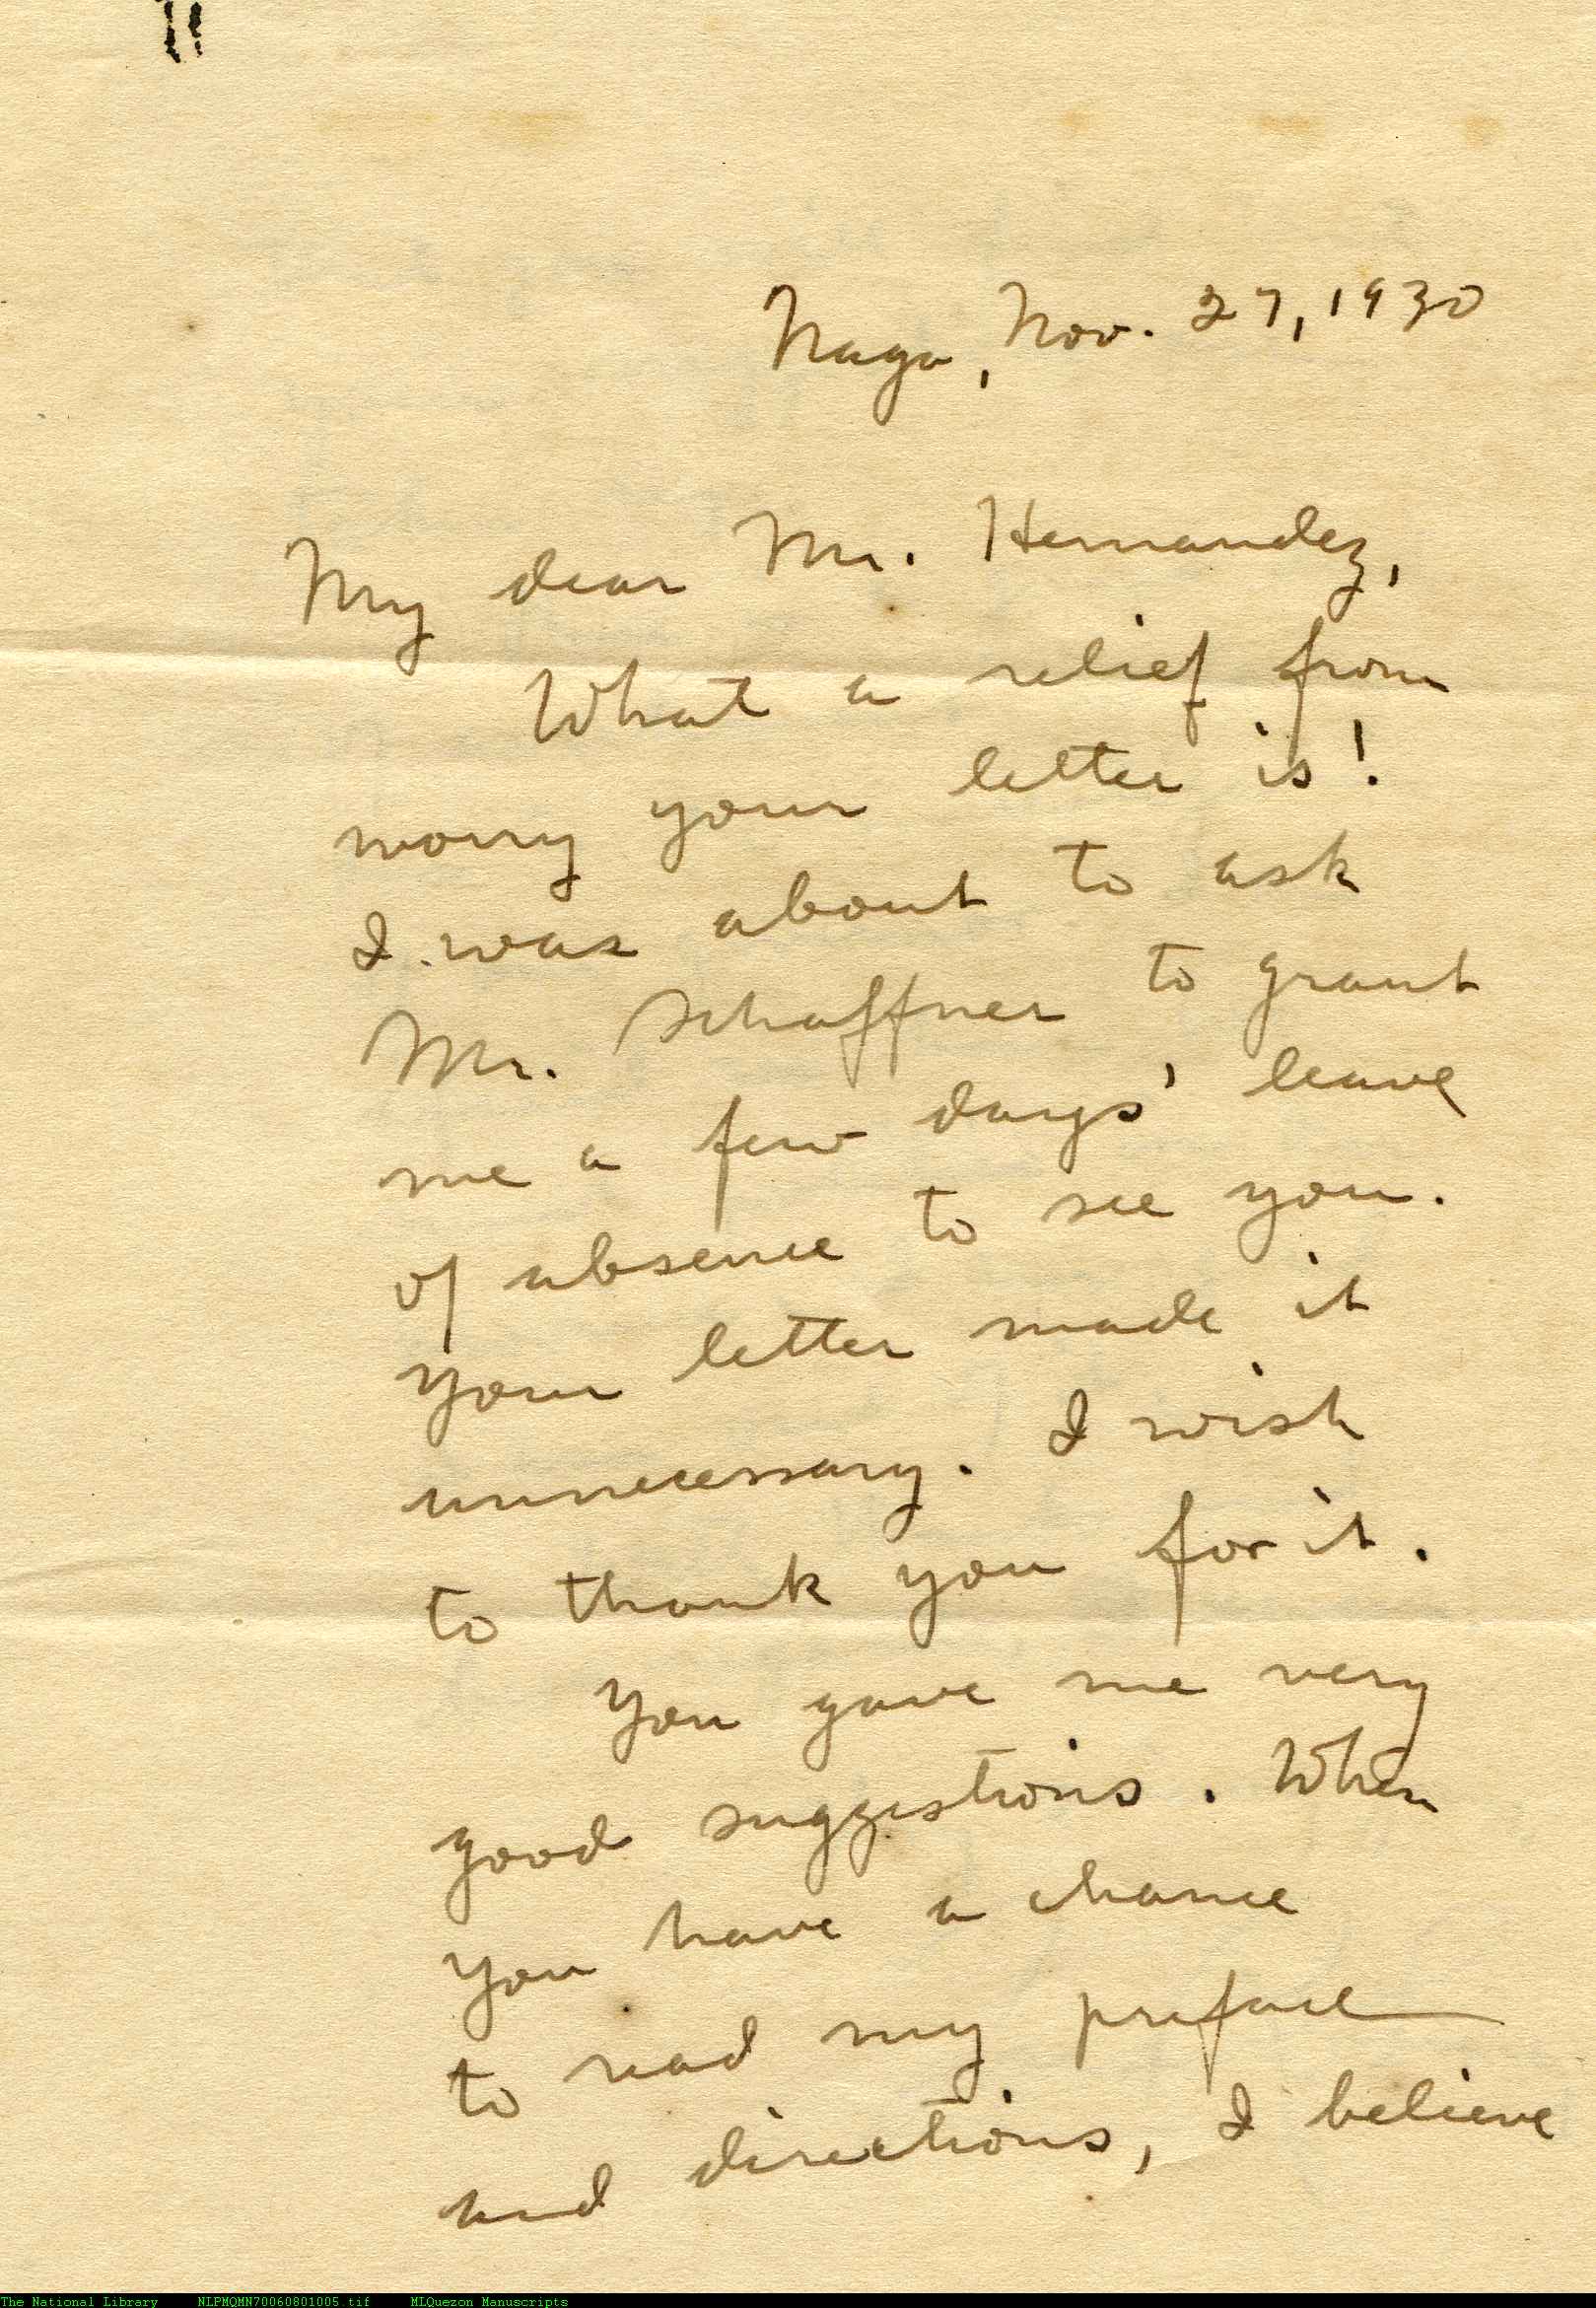 Naga, Nov. 27, 1930
My dear Mr. Hernandez,
What a relief from
worry your letter is!
I was about to ask
Mr. Schaffner to grant
me a few days' leave
of absence to see you.
Your letter made it
unnecessary. I wish
to thank you for it.
You gave me very
good suggestions. When
you have a chance
to read my preface
and directions, I believe
The National Library NLPMQMN70060801005.tif MLQuezon Manuscripts